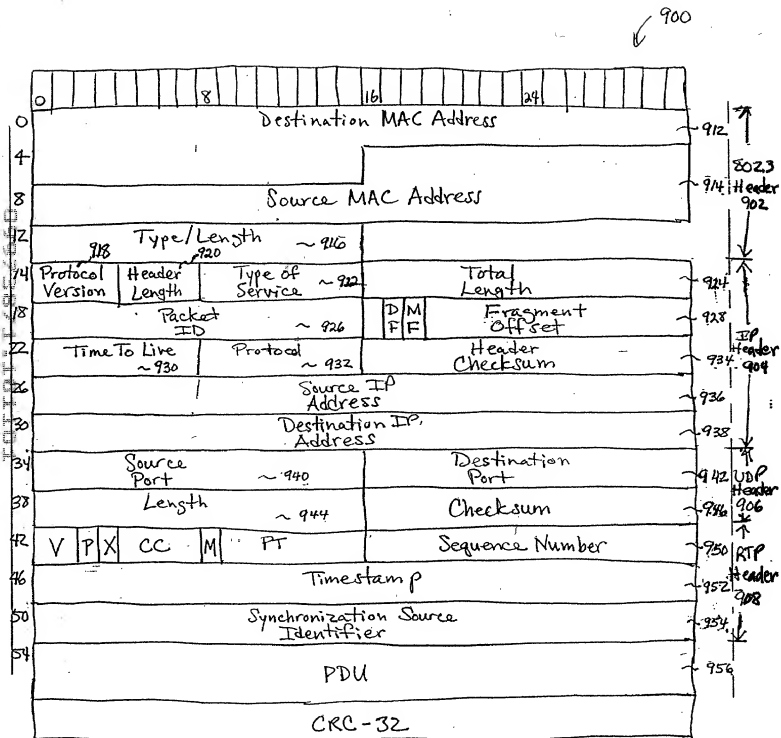 900
0 8 16 24
0 Destination MAC Address 912
4
802.3 Header 902
8 Source MAC Address 914
12 Type/Length ~ 916
918 920
14 Protocol Version Header Length Type of Service ~ 922 Total Length 924
18 Packet ID ~ 926 DF MF Fragment Offset 928
22 Time To Live ~ 930 Protocol ~ 932 Header Checksum 934
IP Header 904
26 Source IP Address 936
30 Destination IP Address 938
34 Source Port ~ 940 Destination Port 942
UDP Header 906
38 Length ~ 944 Checksum 946
42 V P X CC M PT Sequence Number 950
RTP Header 908
46 Timestamp 952
50 Synchronization Source Identifier 954
54 PDU 956
CRC-32